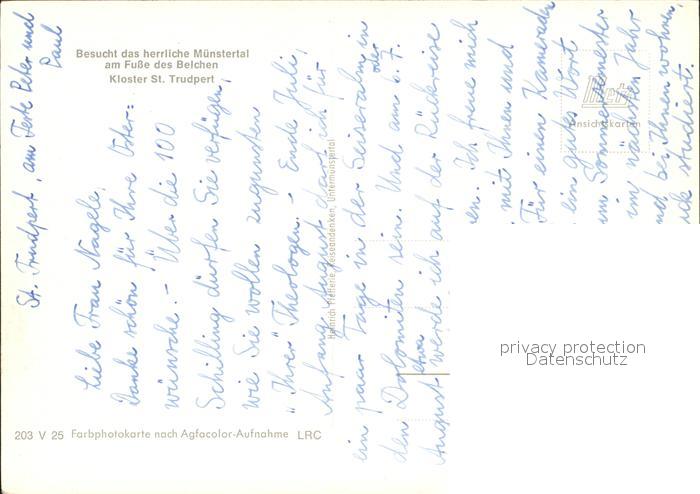 Besucht das herrliche Münstertal
am Fuße des Belchen
Kloster St. Trudpert
St. Trudpert, am Feste Peter und
Paul
Liebe Frau Nagele,
Danke schön für Ihre Oster=
wünsche. – Über die 100
Schilling dürfen Sie verfügen,
wie Sie wollen zugunsten
"Ihrer" Theologen. – Ende Juli,
Anfang August darf ich für
ein paar Tage in der Seiseralm in
oder
den Dolomiten sein. Und am 6. 7.
etwa
August werde ich auf der Rückreise
en. Ich freue mich
mit Ihnen und
Für einen Kamerade
ein gutes Wort
im Sommersemester
im nächsten Jahr
bei Ihnen wohnen,
studiert.
Heinrich Pfefferle, Reiseandenken, Untermünstertal
Ansichtskarten
privacy protection
Datenschutz
203 V 25 Farbphotokarte nach Agfacolor-Aufnahme LRC